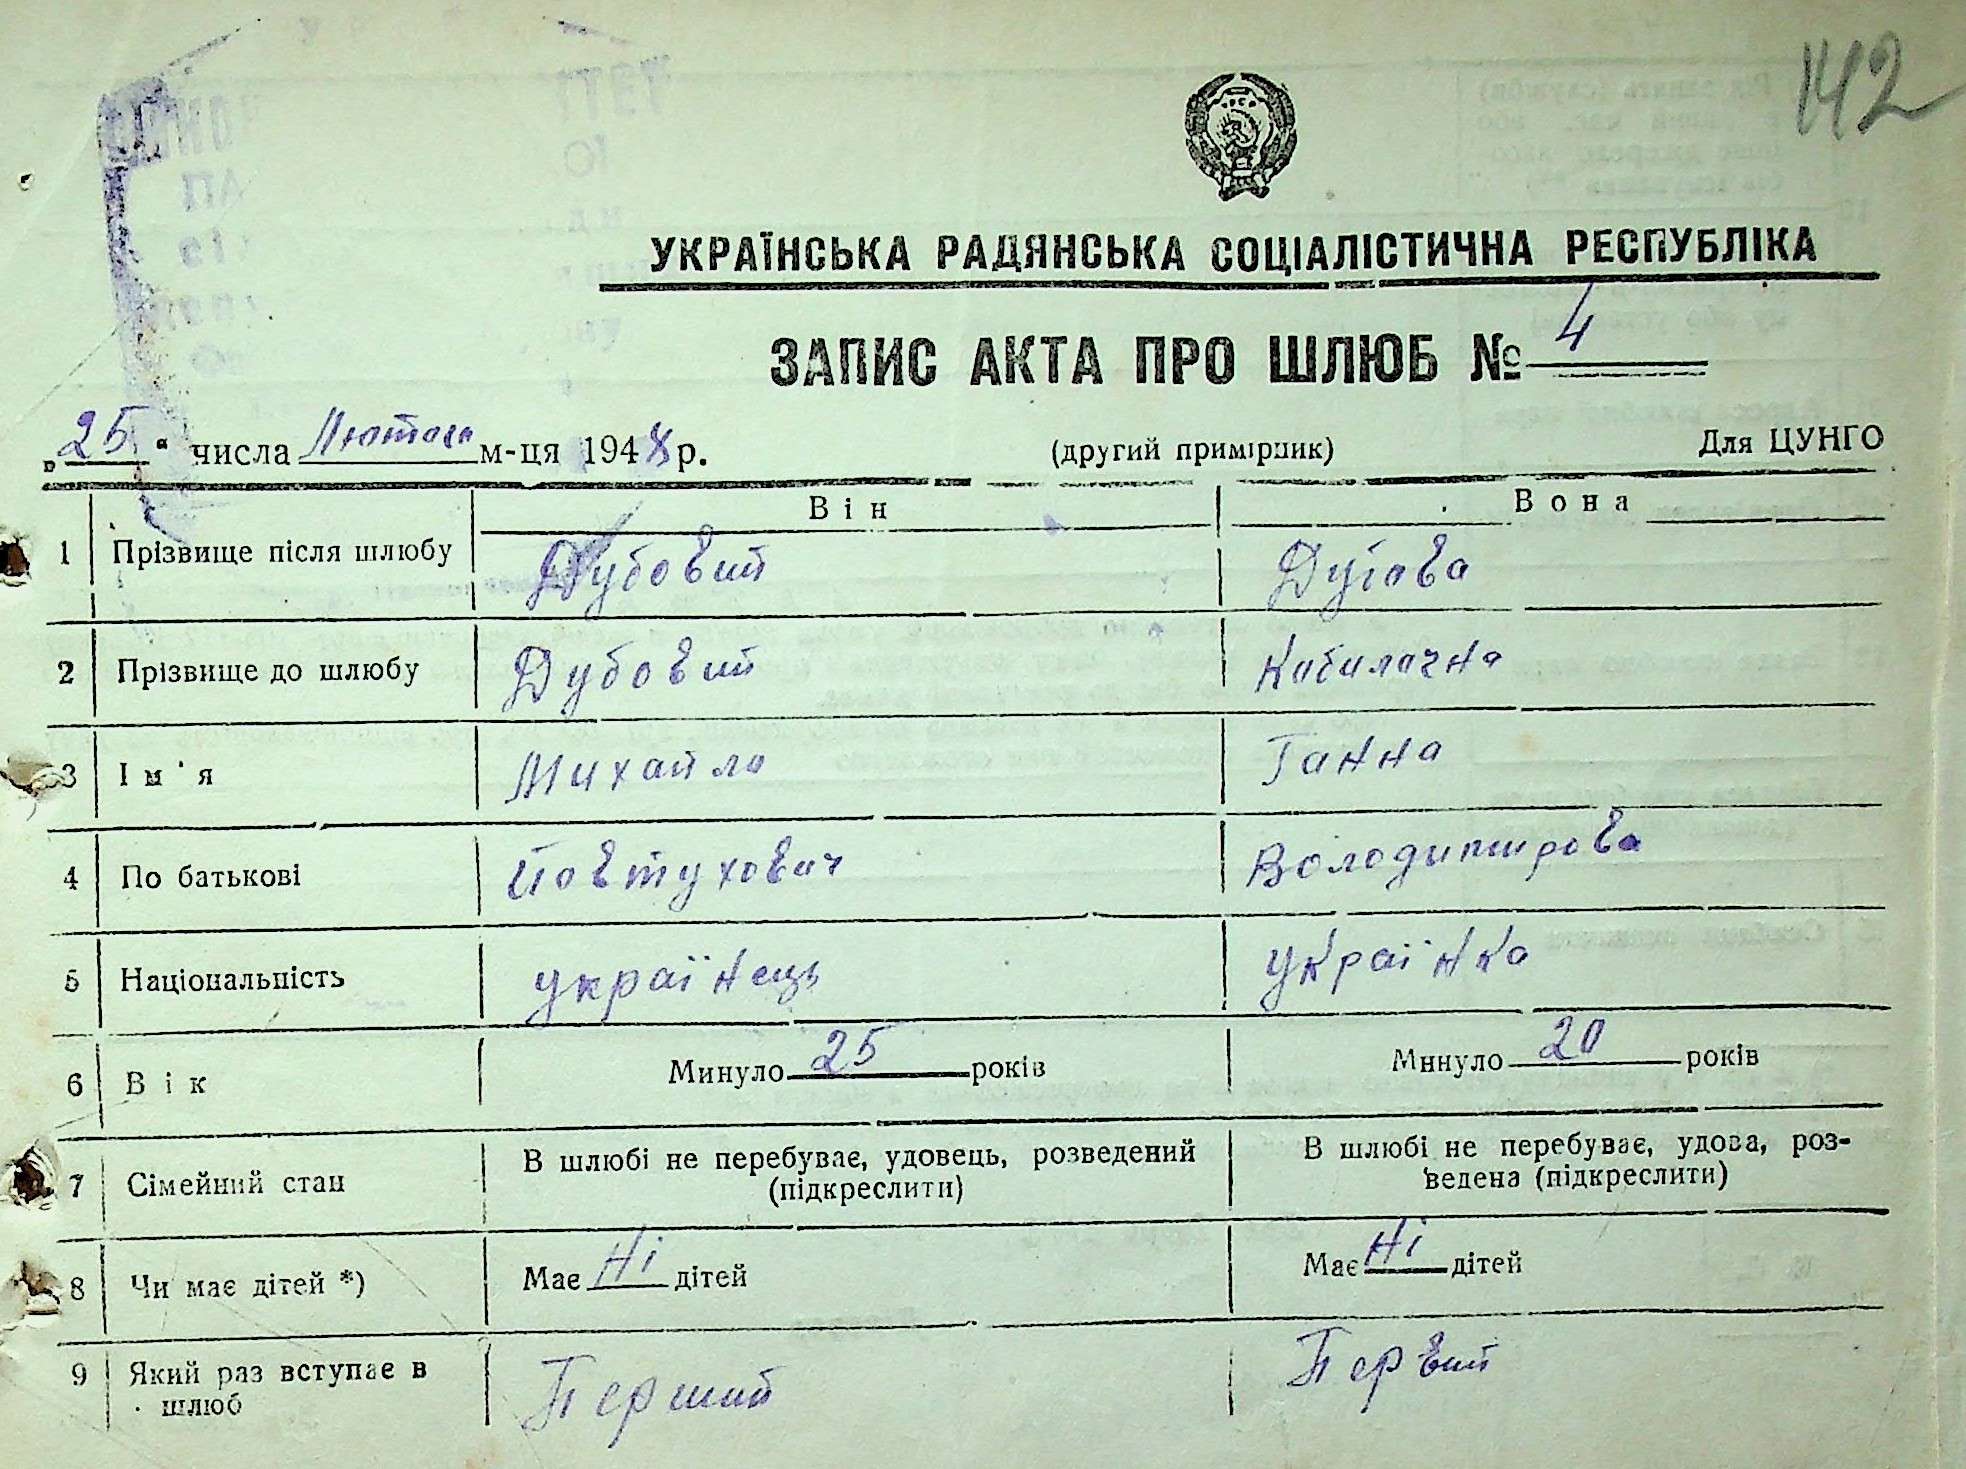 142
УКРАЇНСЬКА РАДЯНСЬКА СОЦІАЛІСТИЧНА РЕСПУБЛІКА
ЗАПИС АКТА ПРО ШЛЮБ № 4
„25“ числа Лютого м-ця 1948 р. (другий примірник) Для ЦУНГО
Він Вона
1 Прізвище після шлюбу Дубовий Дубова
2 Прізвище до шлюбу Дубовий Кобилачна
3 Ім'я Михайло Ганна
4 По батькові Йовтухович Володимирова
5 Національність українець українка
6 Вік Минуло 25 років Минуло 20 років
7 Сімейний стан В шлюбі не перебуває, удовець, розведений (підкреслити) В шлюбі не перебуває, удова, роз-
ведена (підкреслити)
8 Чи має дітей *) Має Ні дітей Має Ні дітей
9 Який раз вступає в шлюб Перший Первий